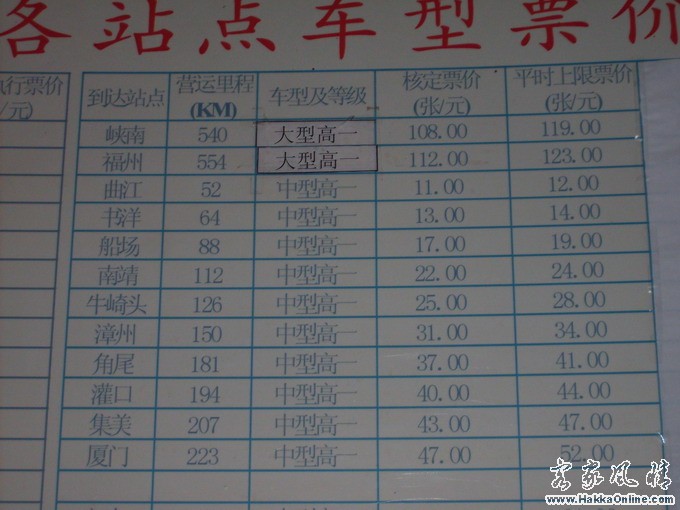 各站点车型票价
执行票价
/元)
到达站点 营运里程(KM) 车型及等级 核定票价(张/元) 平时上限票价(张/元)
峡南 540 大型高一 108.00 119.00
福州 554 大型高一 112.00 123.00
曲江 52 中型高一 11.00 12.00
书洋 64 中型高一 13.00 14.00
船场 88 中型高一 17.00 19.00
南靖 112 中型高一 22.00 24.00
牛崎头 126 中型高一 25.00 28.00
漳州 150 中型高一 31.00 34.00
角尾 181 中型高一 37.00 41.00
灌口 194 中型高一 40.00 44.00
集美 207 中型高一 43.00 47.00
厦门 223 中型高一 47.00 52.00
客家风情
www.HakkaOnline.com